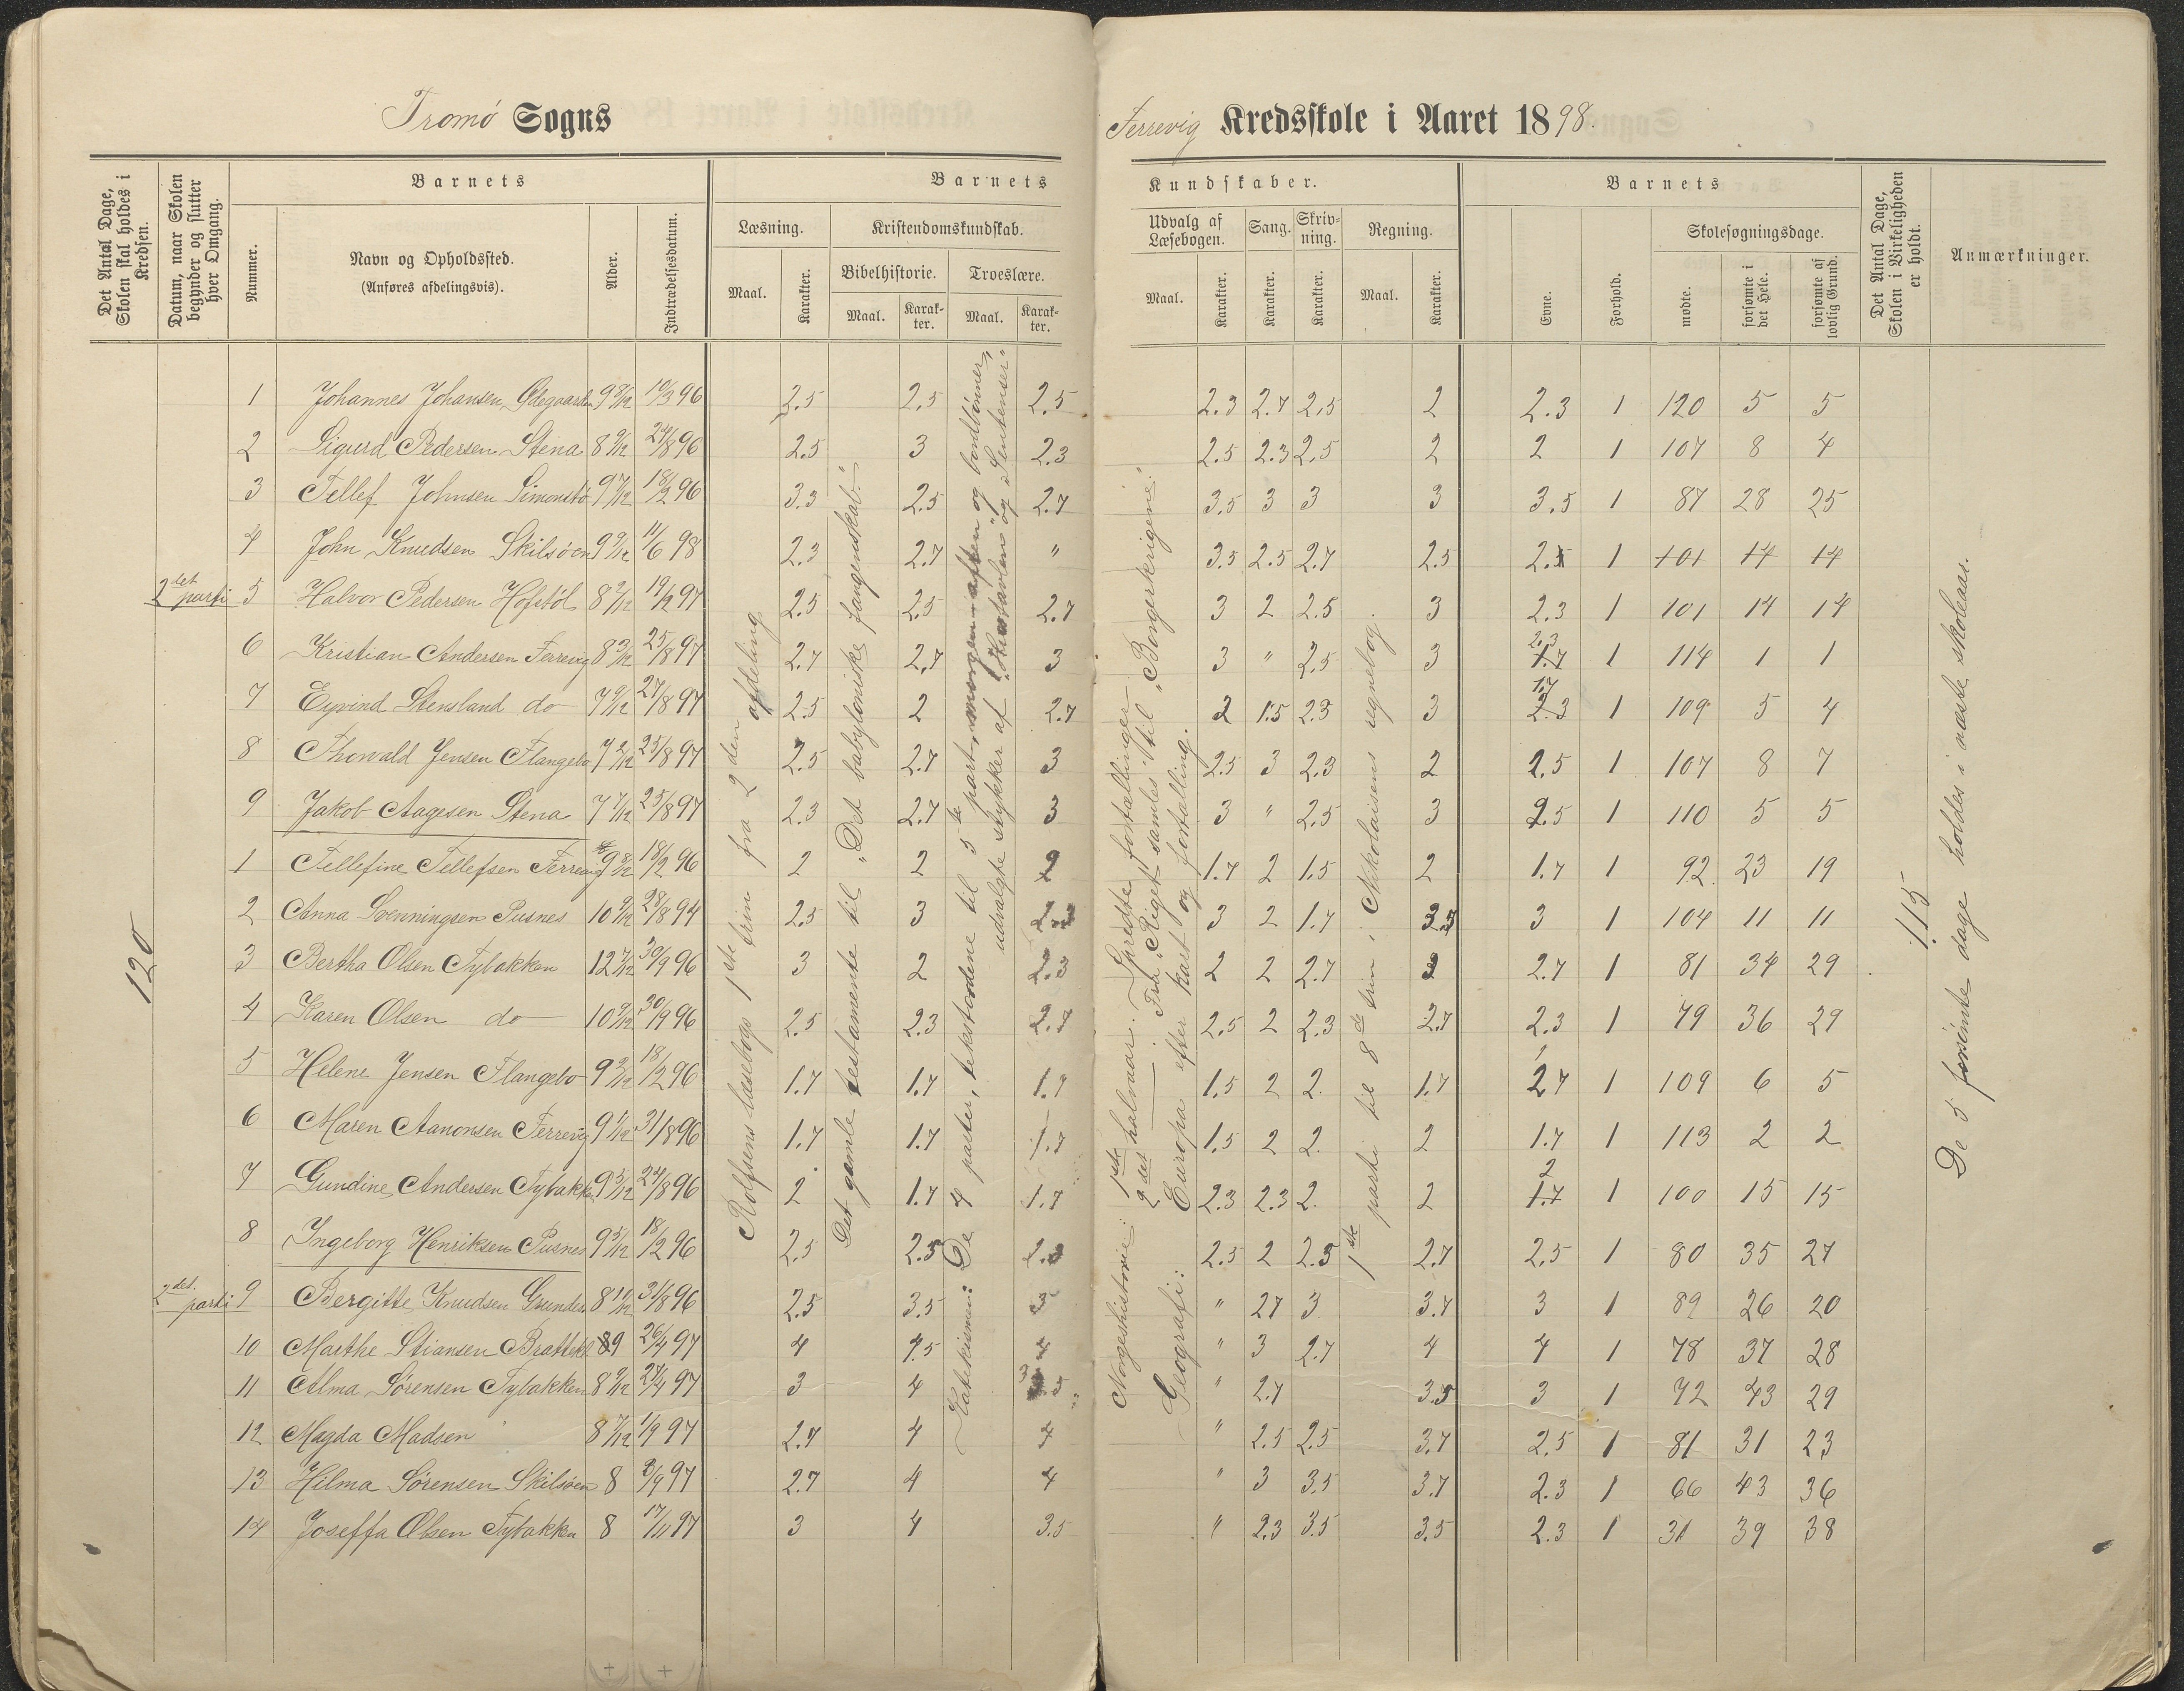 Tromö Sogns
Ferrevig Kredsskole i Aaret 1898.
Det Antal Dage, Skolen skal holdes i Kredsen.
Datum, naar Skolen begynder og slutter hver Omgang.
Barnets
Nummer.
Navn og Opholdssted.
(Anføres afdelingsvis).
Alder.
Indtrædelsesdatum.
Barnets
Kundskaber.
Læsning.
Maal.
Karakter.
Kristendomskundskab.
Bibelhistorie.
Maal.
Karakter.
Troeslære.
Maal.
Karakter.
Udvalg af Læsebogen.
Maal.
Karakter.
Sang.
Karakter.
Skrivning.
Karakter.
Regning.
Maal.
Karakter.
Barnets
Evne.
Forhold.
Skolesøgningsdage.
mødte.
forsømte i det Hele.
forsømte af lovlig Grund.
Det Antal Dage, Skolen i Virkeligheden er holdt.
Anmærkninger.
120
Rolfsens læsebogs 1ste trin fra 2den afdeling
Det gamle testamente til "Det babyloniske fangenskab."
Katekismus: De 4 parter, tekstordene til 5te part, morgen- aften og bordbønner,
udvalgte stykker af "Hustavlen" og "Sentenser"
Norgeshistorie: 1ste halvaar: Spredte fortællinger.
2det halvaar: Fra "Riget samles" til "Borgerkrigene."
Geografi: Europa efter kart og fortælling.
1ste parti til 8de trin i Nikolaisens regnebog.
115
De 5 forsömte dage holdes i næste skoleaar.
1 Johannes Johansen, Ödegaarden 9 8/12 10/3 96 2.5 2.5 2.5 2.3 2.7 2.5 2 2.3 1 120 5 5
2 Sigurd Pedersen Stena 8 9/12 24/8 96 2.5 3 2.3 2.5 2.3 2.5 2 2 1 107 8 4
3 Tellef Johnsen Simonstö 9 7/12 18/2 96 3.3 2.5 2.7 3.5 3 3 3 3.5 1 87 28 25
4 John Knudsen Skilsöen 9 9/12 11/6 98 2.3 2.7 " 3.5 2.5 2.7 2.5 1 101 14 14
2det parti 5 Halvor Pedersen Hofstöl 8 9/12 19/2 97 2.5 2.5 2.7 3 2 2.5 3 2.3 1 101 14 14
6 Kristian Andersen Ferrevig 8 3/12 25/8 97 2.7 2.7 3 3 " 2.5 3 2.3 1.7 1 114 1 1
7 Eyvind Stensland do 7 9/12 27/8 97 2.5 2 2.7 2 1.5 2.3 3 1.7 2.3 1 109 5 4
8 Thorvald Jensen Flangebo 7 2/12 25/8 97 2.5 2.7 3 2.5 3 2.3 2 2.5 1 107 8 7
9 Jakob Aagesen Stena 7 7/12 25/8 97 2.3 2.7 3 3 " 2.5 3 2.5 1 110 5 5
1 Tellefine Tellefsen Ferrevig 9 8/12 18/2 96 2 2 2 1.7 2 1.5 2 1.7 1 92 23 19
2 Anna Svenningsen Pusnes 10 9/12 28/8 94 2.5 3 2.3 3 2 1.7 3.5 3 1 104 11 11
3 Bertha Olsen Tybakken 12 7/12 30/9 96 3 2 2.3 2 2 2.7 3 2.7 1 81 34 29
4 Karen Olsen do 10 9/12 30/9 96 2.5 2.3 2.7 2.5 2 2.3 2.7 2.3 1 79 36 29
5 Helene Jensen Flangebo 9 3/12 18/2 96 1.7 1.7 1.7 1.5 2 2. 1.7 2.7 1 109 6 5
6 Maren Aanonsen Ferrevig 9 1/12 31/8 96 1.7 1.7 1.7 1.5 2 2. 2 1.7 1 113 2 2
7 Gundine Andersen Tybakk. 9 3/12 24/8 96 2 1.7 1.7 2.3 2.3 2. 2 2 1.7 1 100 15 15
8 Ingeborg Henriksen Pusnes 9 5/12 18/2 96 2.5 2.5 2.3 2.5 2 2.5 2.7 2.5 1 80 35 27
2det parti 9 Bergitte Knudsen Grunden 8 10/12 31/8 96 2.5 3.5 3 " 27 3 3.7 3 1 89 26 20
10 Marthe Stiansen Brattekl. 9 26/4 97 4 4.5 4 " 3 2.7 4 4 1 78 37 28
11 Alma Sörensen Tybakken 8 9/12 27/4 97 3 4 3.5 " 2.7 3.5 3 1 72 43 29
12 Magda Madsen 8 7/12 1/9 97 2.7 4 4 " 2.5 2.5 3.7 2.5 1 81 31 23
13 Hilma Sörensen Skilsöen 8 8/9 97 2.7 4 4 " 3 3.5 3.7 2.3 1 66 43 36
14 Joseffa Olsen Tybakken 8 17/11 97 3 4 3.5 " 2.3 3.5 3.5 2.3 1 31 39 38